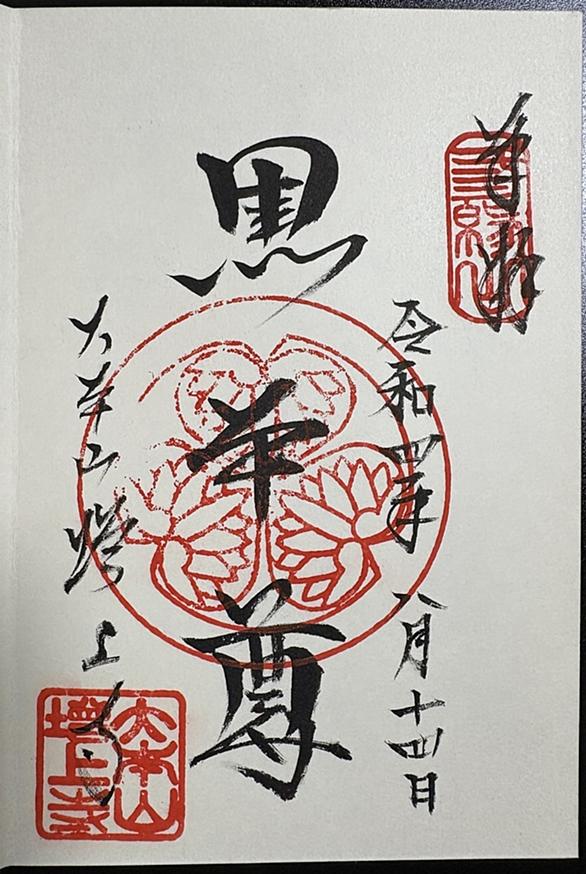 奉拝
三縁山
令和四年 八月十四日
黒本尊
大本山増上寺
大本山
増上寺